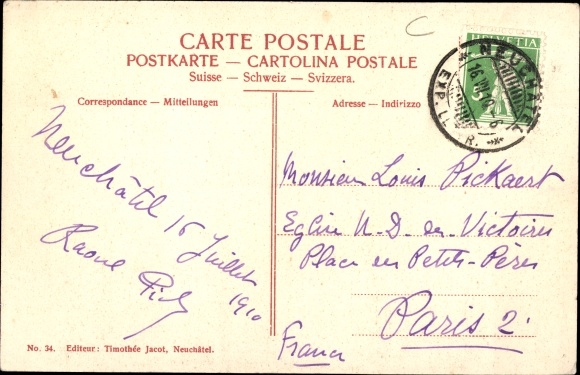 C
CARTE POSTALE
POSTKARTE — CARTOLINA POSTALE
Suisse — Schweiz — Svizzera.
Correspondance — Mitteilungen
Adresse — Indirizzo
HELVETIA
NEUCHATEL
EXP. L.
Neuchâtel 16 Juillet
1910
Raoul
Monsieur Louis Pickaert
Eglise N-D. des Victoires
Place des Petits-Pères
Paris 2.
France
No. 34. Editeur: Timothée Jacot, Neuchâtel.